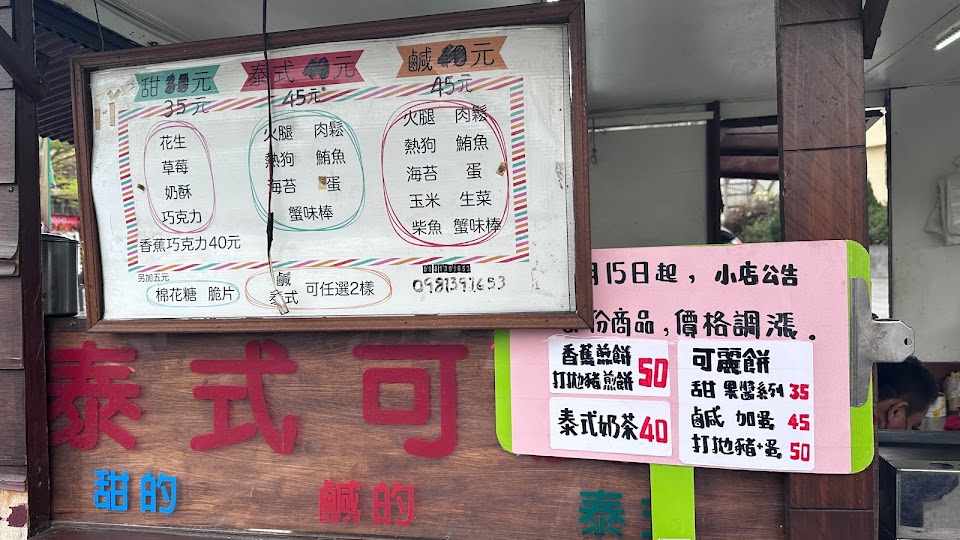 甜 元
35元
花生
草莓
奶酥
巧克力
香蕉巧克力40元
另加五元
棉花糖 脆片
泰式 40元
45元
火腿 肉鬆
熱狗 鮪魚
海苔 蛋
蟹味棒
鹹 40元
45元
火腿 肉鬆
熱狗 鮪魚
海苔 蛋
玉米 生菜
柴魚 蟹味棒
鹹
泰式 可任選2樣
0981391653
月15日起, 小店公告
份商品,價格調漲.
香蕉煎餅
打拋豬煎餅 50
泰式奶茶40
可麗餅
甜 果醬系列 35
鹹 加蛋 45
打拋豬+蛋 50
泰式可
甜的
鹹的
泰